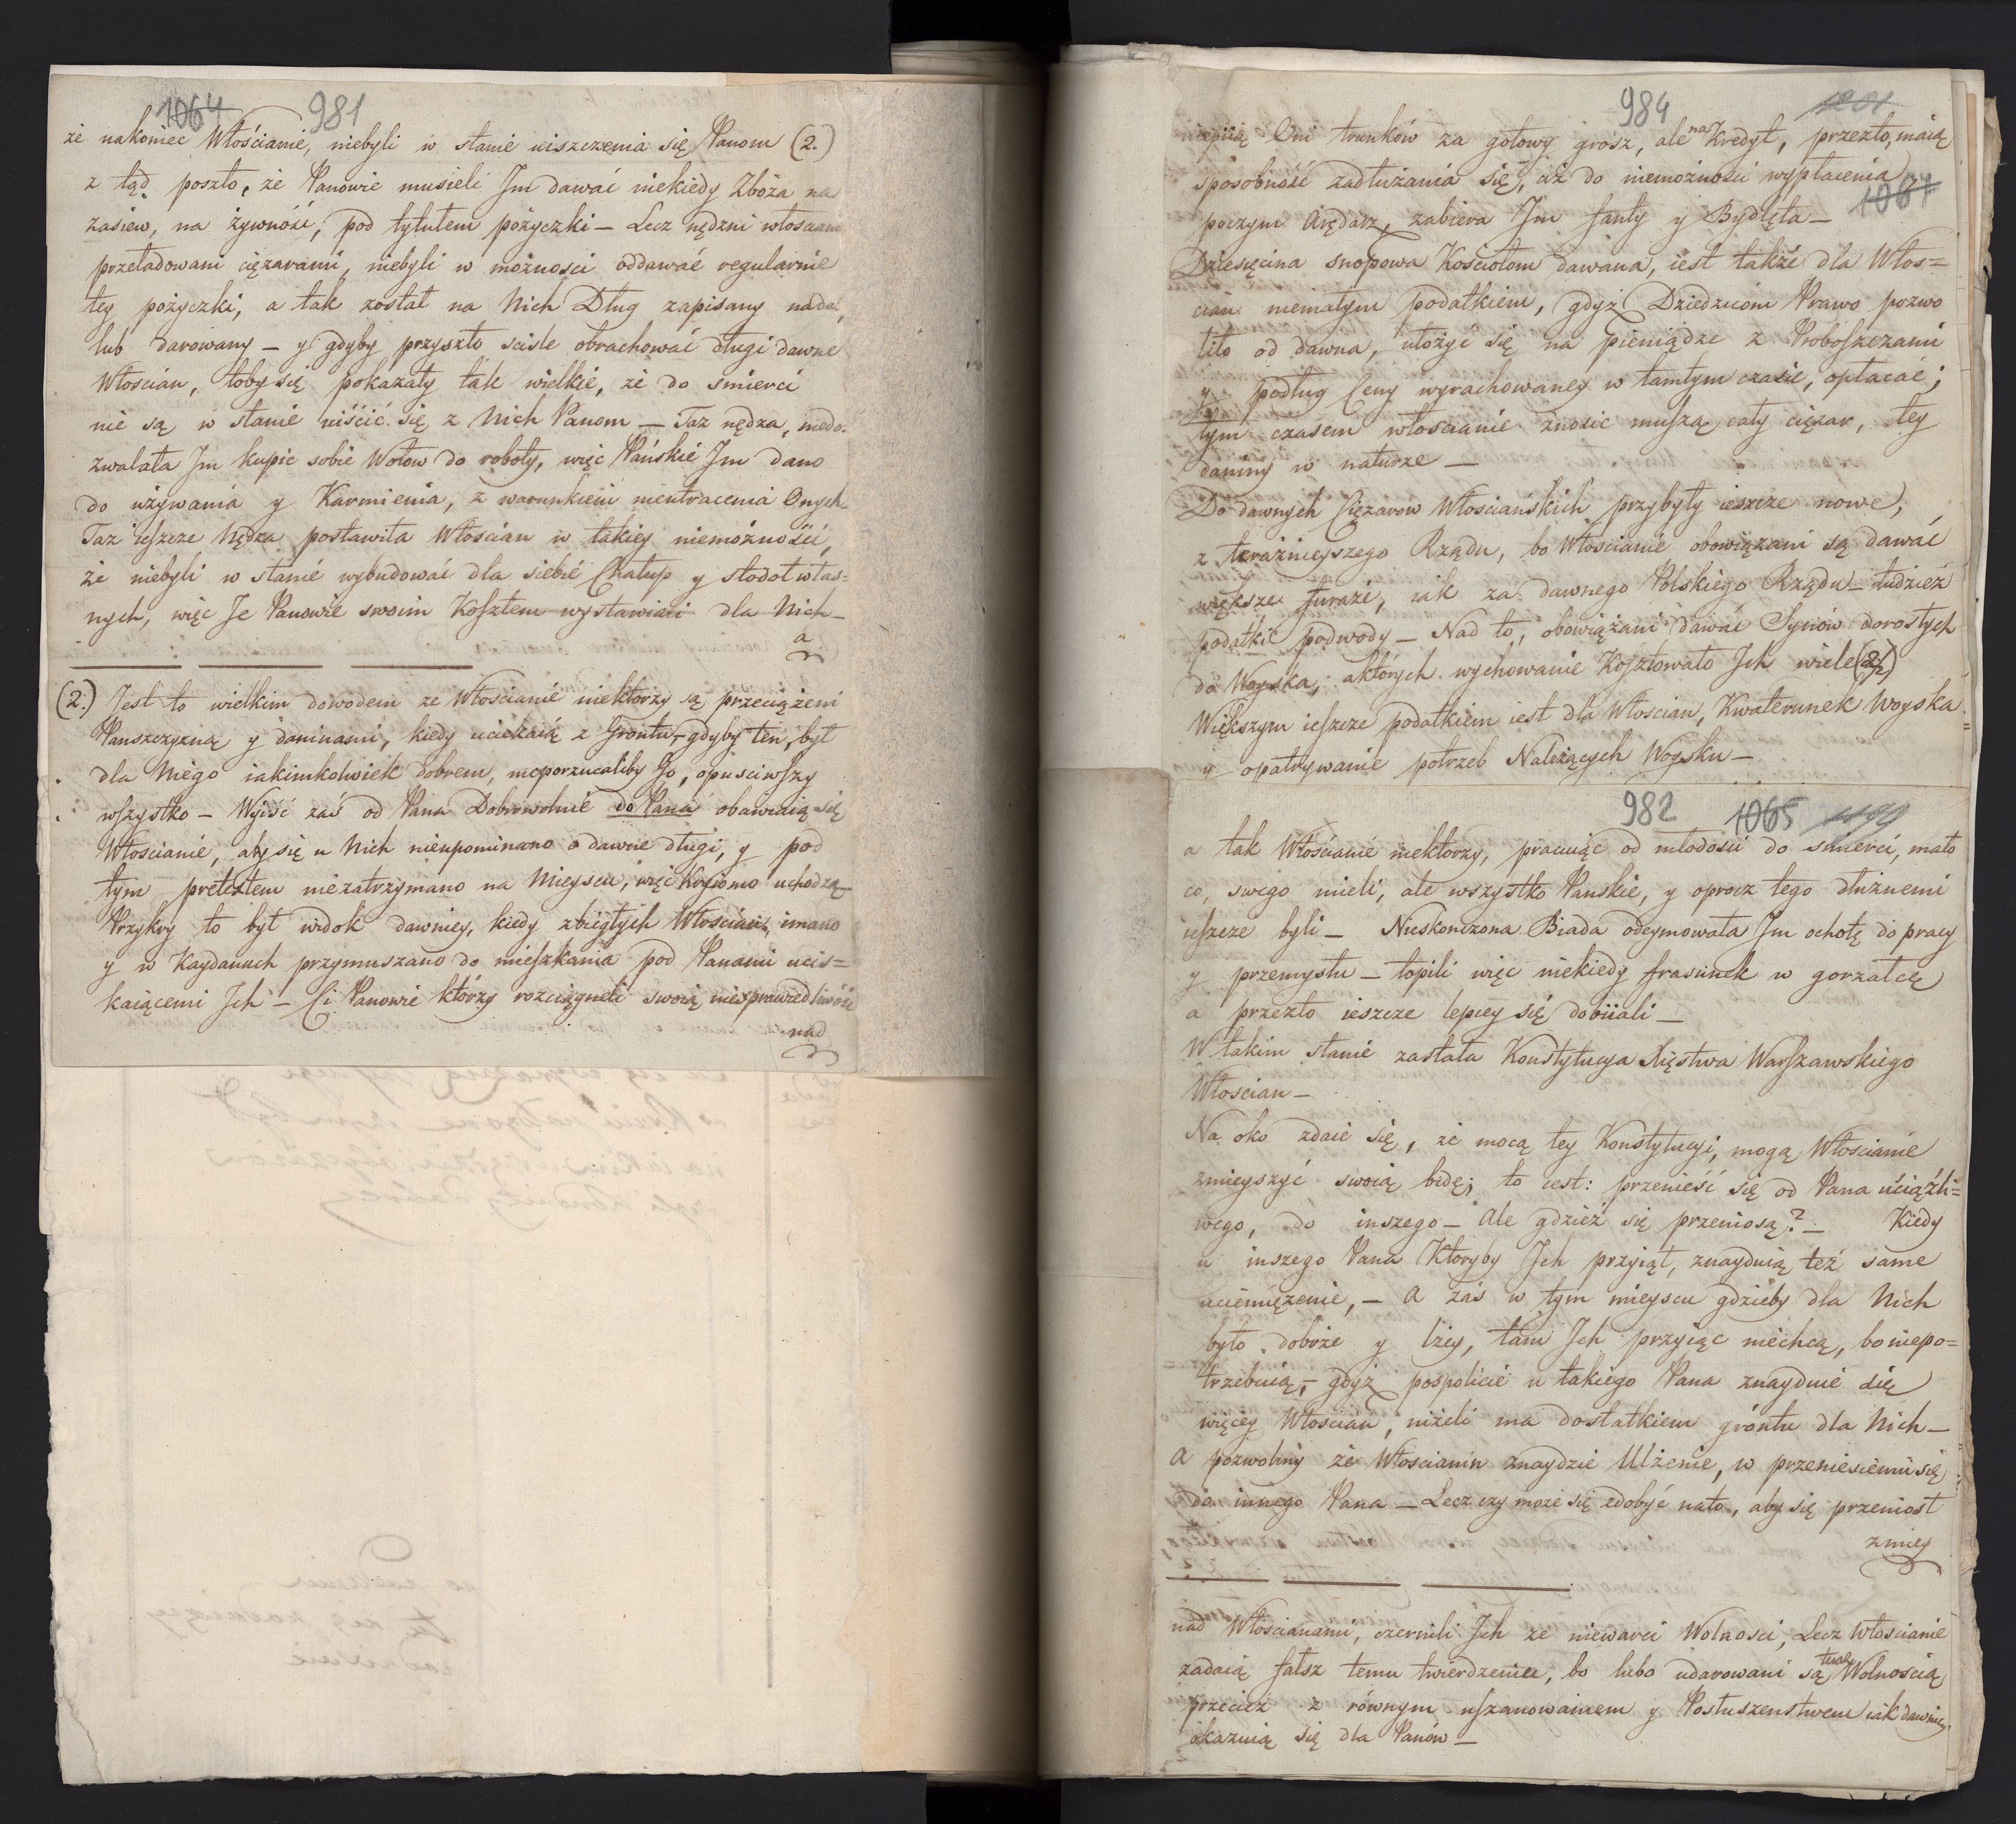 1064 981
że nakoniec Włościanie, niebyli w stanie uiszczenia się Panom (2.)
z tąd poszło, że Panowie musieli Jm dawać niekiedy Zboża na
zasiew, na żywność, pod tytułem pożyczki – Lecz nędzni włoscianie
przeładowani ciężarami, niebyli w możności oddawać regularnie
tey pożyczki, a tak został na Nich Dług zapisany nadal,
lub darowany – y gdyby przyszło sciśle obrachować długi dawne
Włościan, toby się pokazały tak wielkie, że do smierci
nie są w stanie uiścić się z Nich Panom – Taż nędza, niedo-
zwalała Jm kupic sobie Wołow do roboty, więc Pańskie Jm dano
do używania y Karmienia, z warunkiem nieutracenia Onych.
Taż ieszcze Nędza postawiła Włościan w takiey niemożności,
że niebyli w stanie wybudować dla siebie Chałup y stodoł włas=
nych, więc Je Panowie swoim Kosztem wystawiali dla Nich –
a
(2.) Jest to wielkim dowodem ze Włościanie niektorzy są przeciążeni
Panszczyzną y daninami, kiedy uciekaią z Gruntu, gdyby ten, był
dla Niego iakimkolwiek dobrem, nieporzucaliby Go, opusciwszy
wszystko – Wyiść zaś od Pana Dobrowolnie do Pana obawiaią się
Włoscianie, aby się u Nich nieupominano o dawne długi, y pod
tym pretextem niezatrzymano na Mieyscu, więc Kryiomo uchodzą –
Przykry to był widok dawniey, kiedy zbiegłych Włoscian, imano
y w Kaydanach przymuszano do mieszkania pod Panami ucis=
kaiącemi Jch – Ci Panowie ktorzy rozciągneli swoią niesprawiedliwość
nad
984
niepiią Oni trunków za gotowy grosz, ale na Kredyt, przezto, maią
sposobność zadłużania się, aż do niemożności wypłacenia
1067
poczym Arędarz, zabiera Jm fanty y Bydlęta –
Dziesięcina snopowa Kościołom dawana, iest także dla Włos=
cian niemałym podatkiem, gdyż Dziedzicóm Prawo pozwo
liło od dawna, ułożyć się na pieniądze z Proboszczami
y podług Ceny wyrachowaney w tamtym czasie, opłacać;
tym czasem włoscianie znosic muszą cały ciężar, tey
daniny w naturze –
Do dawnych Ciężarow Włosciańskich przybyły ieszcze nowe,
z teraźnieyszego Rządu, bo Włoscianie obowiązani są dawać
większe furaże, iak za dawnego Polskiego Rządu – tudzież
podatki podwody – Nad to, obowiązani dawać Synów dorosłych
do Woyska, a których wychowanie Kosztowało Jch wiele
Większym ieszcze podatkiem iest dla Włoscian, Kwaterunek Woyska
y opatrywanie potrzeb Należących Woysku –
982 1065
a tak Włościanie niektorzy, pracuiąc od młodości do smierci, mało
co, swego mieli, ale wszystko Panskie, y oprocz tego dłużnemi
ieszcze byli – Nieskonczona Biada odeymowała Jm ochotę do pracy
y przemysłu – topili więc niekiedy frasunek w gorzałce
a przezto ieszcze lepiey się dobiiali –
W takim stanie zastała Konstytucya Xięstwa Warszawskiego
Włoscian –
Na oko zdaie się, że mocą tey Konstytucyi, mogą Włoscianie
zmieyszyć swoią bidę; to iest: przenieść się od Pana uciążli=
wego, do inszego – Ale gdzież się przeniosą? – Kiedy
u inszego Pana Któryby Jch przyiął, znayduią też same
uciemiężenie, – A zaś w tym mieyscu gdzieby dla Nich
było dobrze y lżey, tam Jch przyiąc niechcą, bo niepo=
trzebuią, – gdyż pospolicie u takiego Pana znayduie się
więcey Włoscian, niżeli ma dostatkiem gróntu dla Nich –
A pozwolmy że Włoscianin znaydzie Ulżenie, w przeniesieniu się
do innego Pana – Lecz czy może się zdobyć nato, aby się przeniosł
z miey
nad Włoscianami, czernili Jch ze niewarci Wolnosci, Lecz Włoscianie
zadaią fałsz temu twierdzeniu, bo lubo udarowani są teraz Wolnością
przecież z równym uszanowaniem y Posłuszenstwem iak dawniey
okazuią się dla Panów –